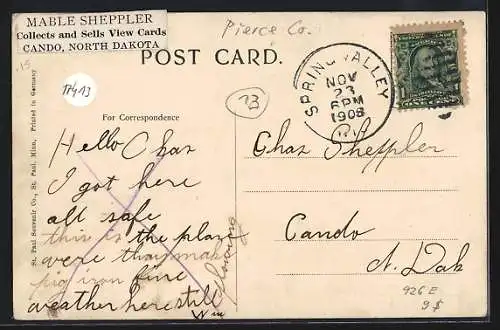 MABLE SHEPPLER
Collects and Sells View Cards
CANDO, NORTH DAKOTA
Pierce Co.
POST CARD.
15
TP413
For Correspondence
23
SPRING VALLEY
NOV
23
6PM
1908
WIS.
1
St. Paul Souvenir Co., St. Paul, Minn. Printed in Germany
Hello Chas
I got here
all safe
this is the plan
were they make
pig iron fine
weather here still
Wm
Chas Sheppler
Cando
N. Dak
926 E
9$